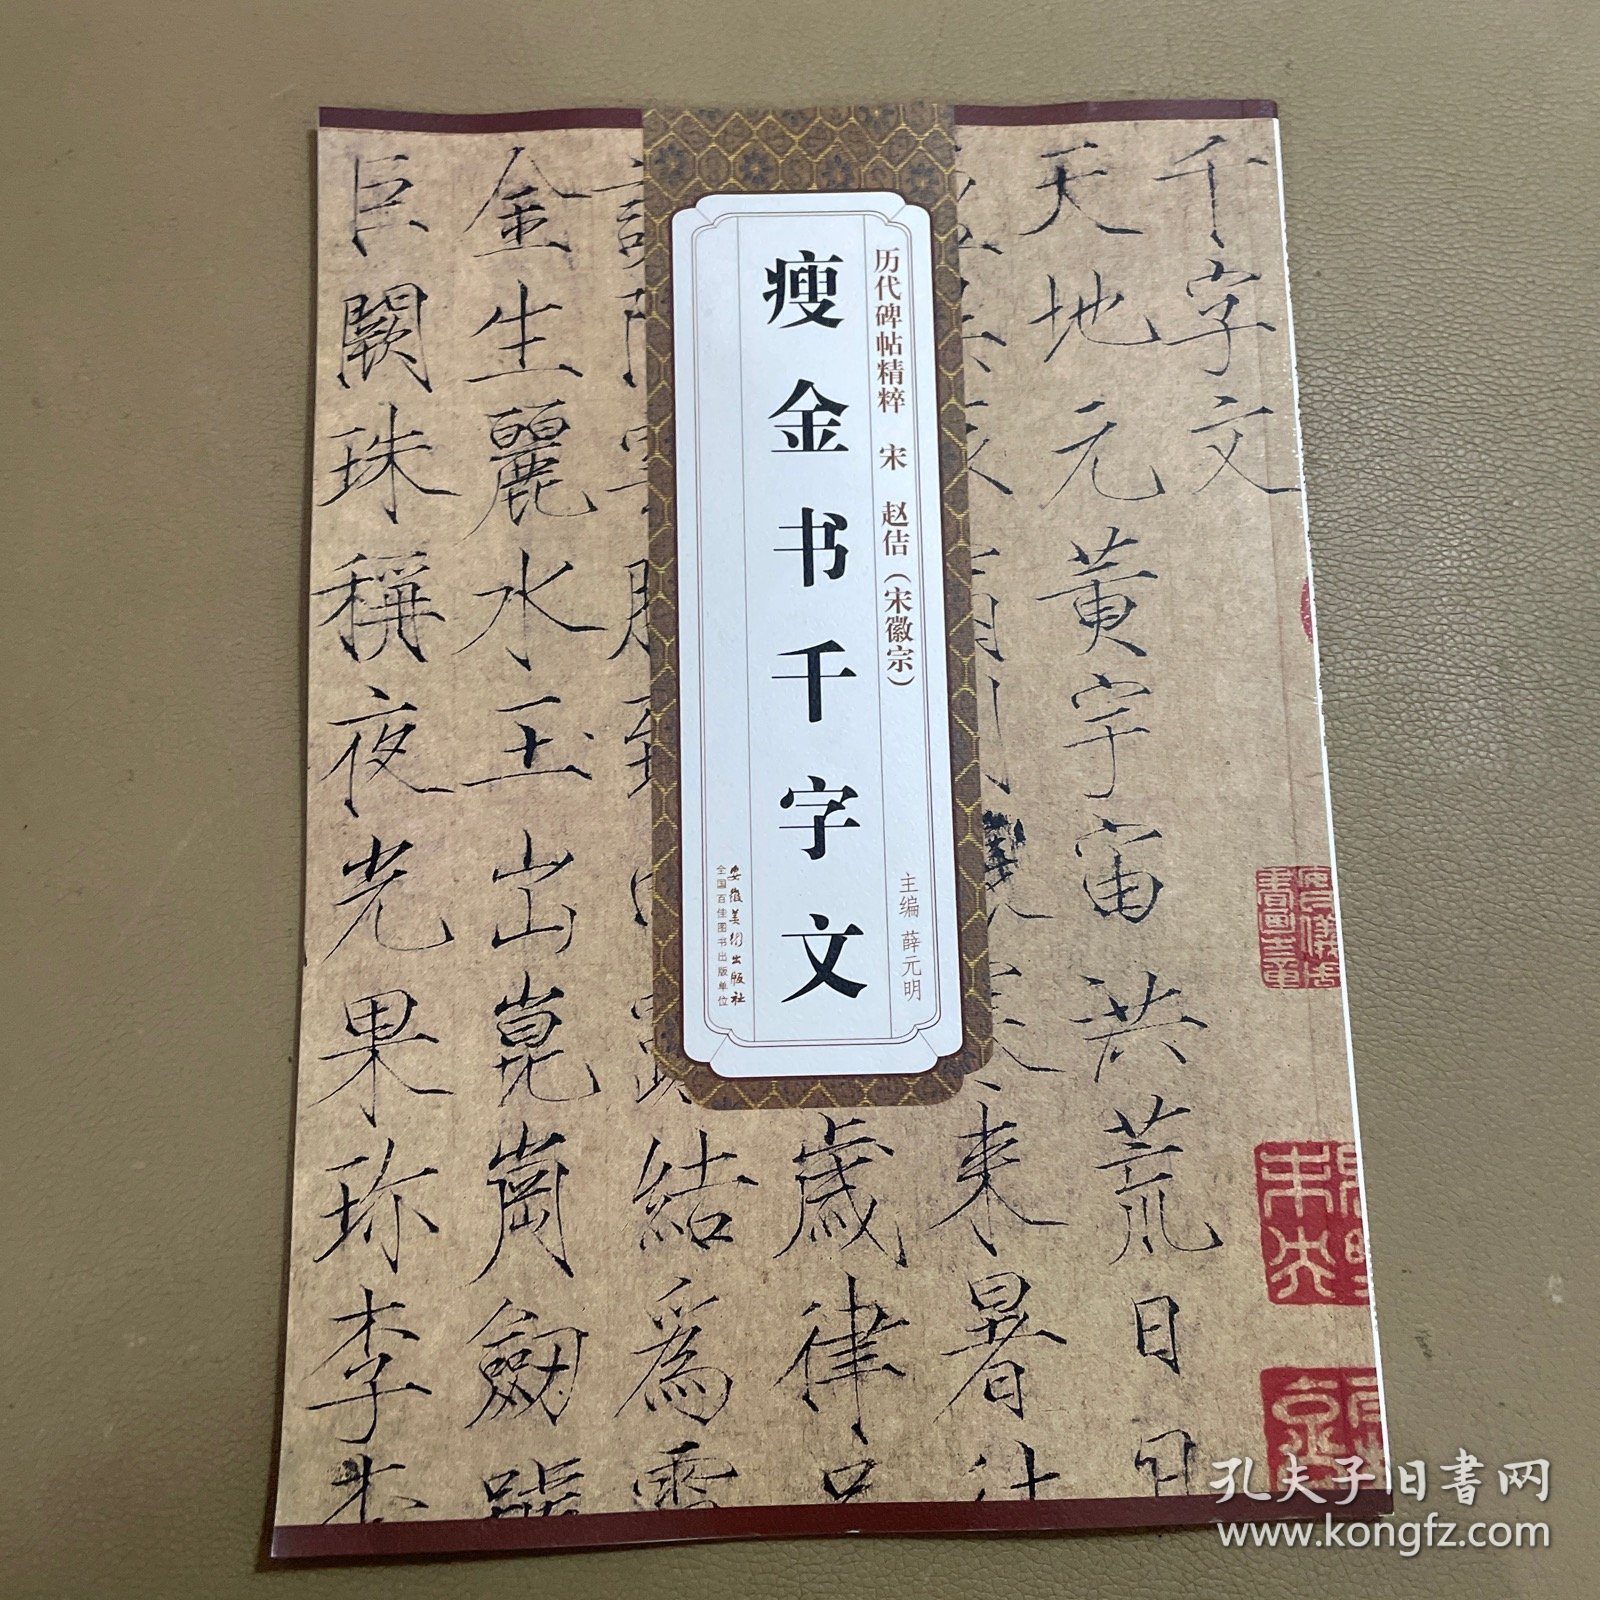 千字文
天地元黄宇宙洪荒日月
来暑往
歲律吕
結爲霜
金生麗水玉出崑崗劍號
巨闕珠稱夜光果珎李柰
历代碑帖精粹 宋 赵佶（宋徽宗）
瘦金书千字文
主编 薛元明
安徽美术出版社
全国百佳图书出版单位
孔夫子旧書网
www.kongfz.com